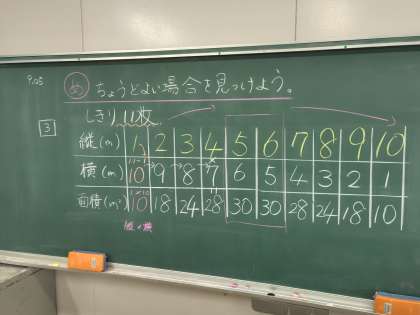 P.05
め ちょうどよい場合を見つけよう。
しきり11枚
3
縦(m) 1 2 3 4 5 6 7 8 9 10
横(m) 10 9 8 7 6 5 4 3 2 1
面積(m²) 10 18 24 28 30 30 28 24 18 10
縦×横